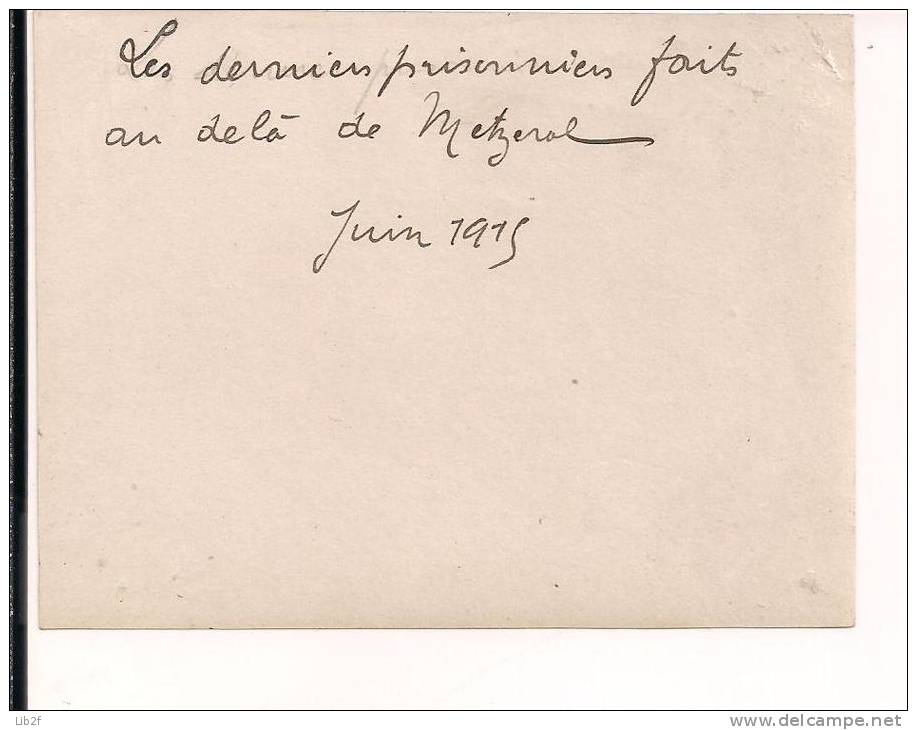 Les derniers prisonniers faits
au delà de Metzeral
Juin 1915
Lib2f
www.delcampe.net